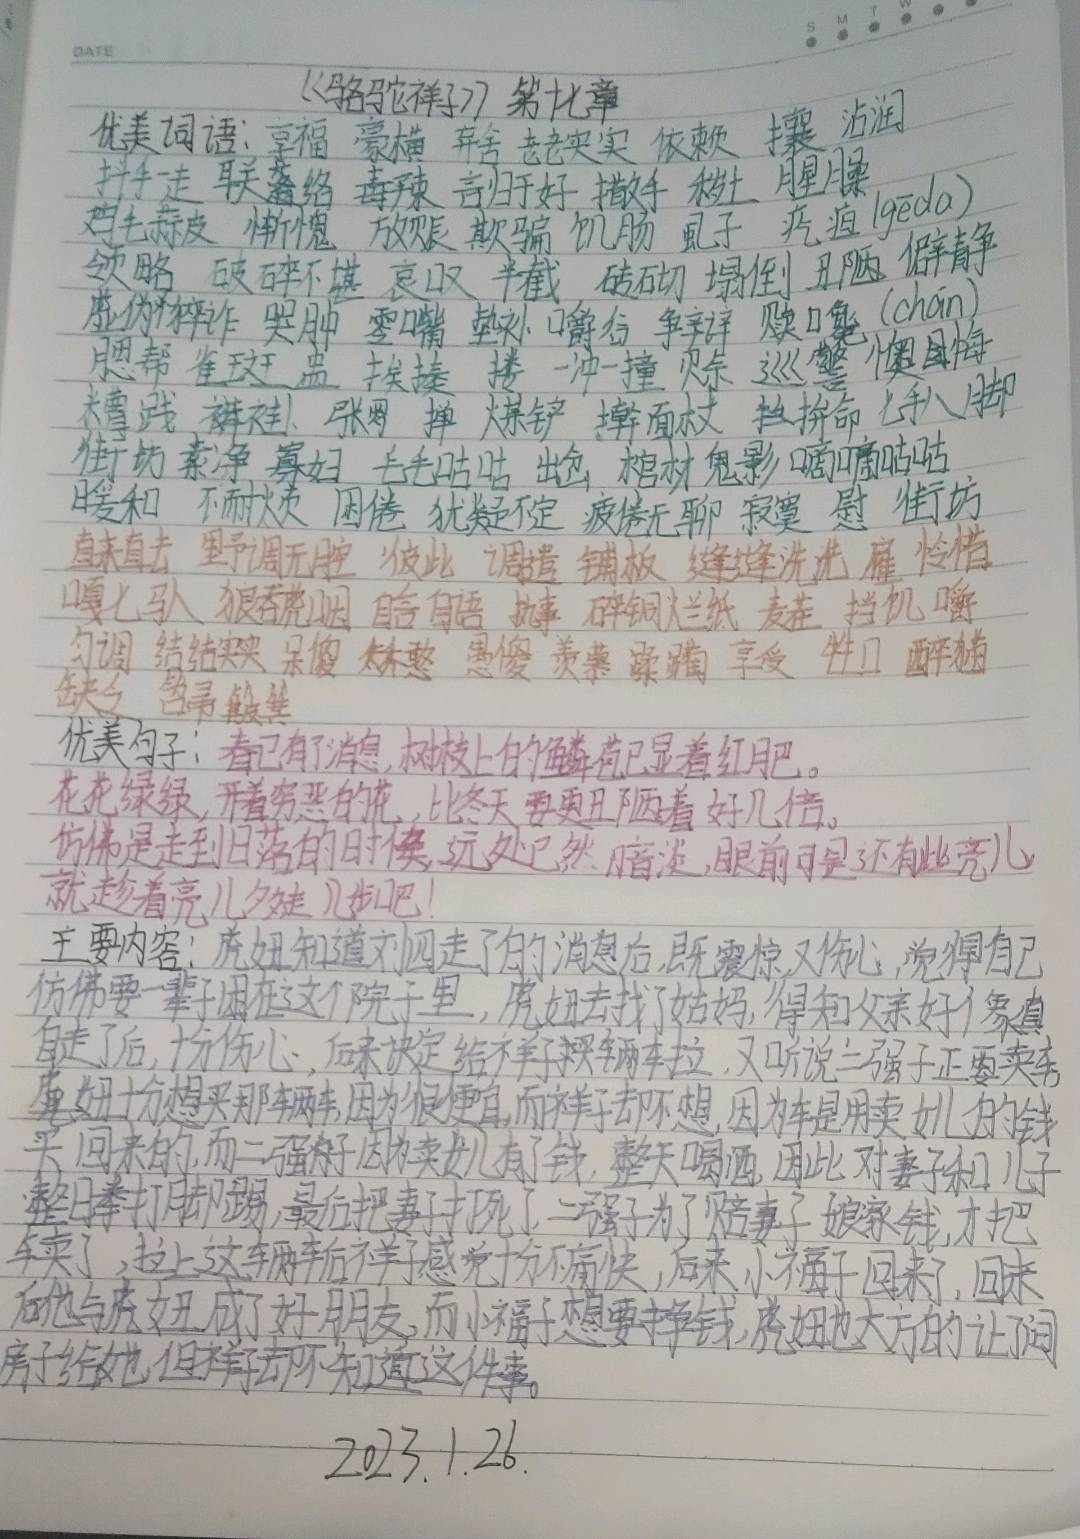 DATE
S M T W
《骆驼祥子》 第十七章
优美词语: 享福 豪横 弃舍 老老实实 依赖 攘 沾润
抖手一走 联络 毒辣 言归于好 撒手 腥臊
鸡毛蒜皮 惭愧 放账 欺骗 饥肠 虱子 疙疸(gēda)
领略 破碎不堪 哀叹 半截 砖砌 塌倒 丑陋 僻静
虚伪狡诈 哭肿 零嘴 垫补 嚼谷 争辩 (chán)
腮帮 雀斑 盅 挨揍 搂 一冲一撞 赊 巡警 懊悔
糟践 裤褂 张罗 掸 煤铲 擀面杖 拼命 七手八脚
街坊 素净 寡妇 毛毛咕咕 出岔 棺材 鬼影 嘀嘀咕咕
暖和 不耐烦 困倦 犹疑不定 疲倦无聊 寂寞 慰 街坊
直来直去 野调无腔 彼此 调遣 铺板 缝缝洗洗 雇 怜惜
嘎七马八 狼吞虎咽 自言自语 执事 碎铜烂纸 麦茬 挡饥 嚼
匀调 结结实实 呆傻 憨 愚傻 羡慕 蹂躏 享受 牲口 醉猫
缺少 笤帚 簸箕
优美句子: 春已有了消息,树枝上的鳞苞已显着红肥。
花花绿绿,开着穷恶的花,比冬天要更丑陋着好几倍。
仿佛是走到日落的时候,远处已然暗淡,眼前可是还有些亮儿
就趁着亮儿多走几步吧!
主要内容: 虎妞知道刘四走了的消息后,既震惊又伤心,觉得自己
仿佛要一辈子困在这个院子里,虎妞去找了姑妈,得知父亲好像真
自走了后,十分伤心,后来决定给祥子买辆车拉,又听说二强子正要卖车,
虎妞十分想买那辆车,因为很便宜,而祥子却不想,因为车是用卖女儿的钱
买回来的,而二强子因为卖女儿有了钱,整天喝酒,因此对妻子和儿子
整日拳打脚踢,最后把妻子打死了,二强子为了赔妻子娘家钱,才把
车卖了,拉上这辆车后祥子感觉十分不痛快,后来小福子回来了,回来
后他与虎妞成了好朋友,而小福子想要挣钱,虎妞也大方的让了间
房子给她,但祥子却不知道这件事。
2023.1.26.